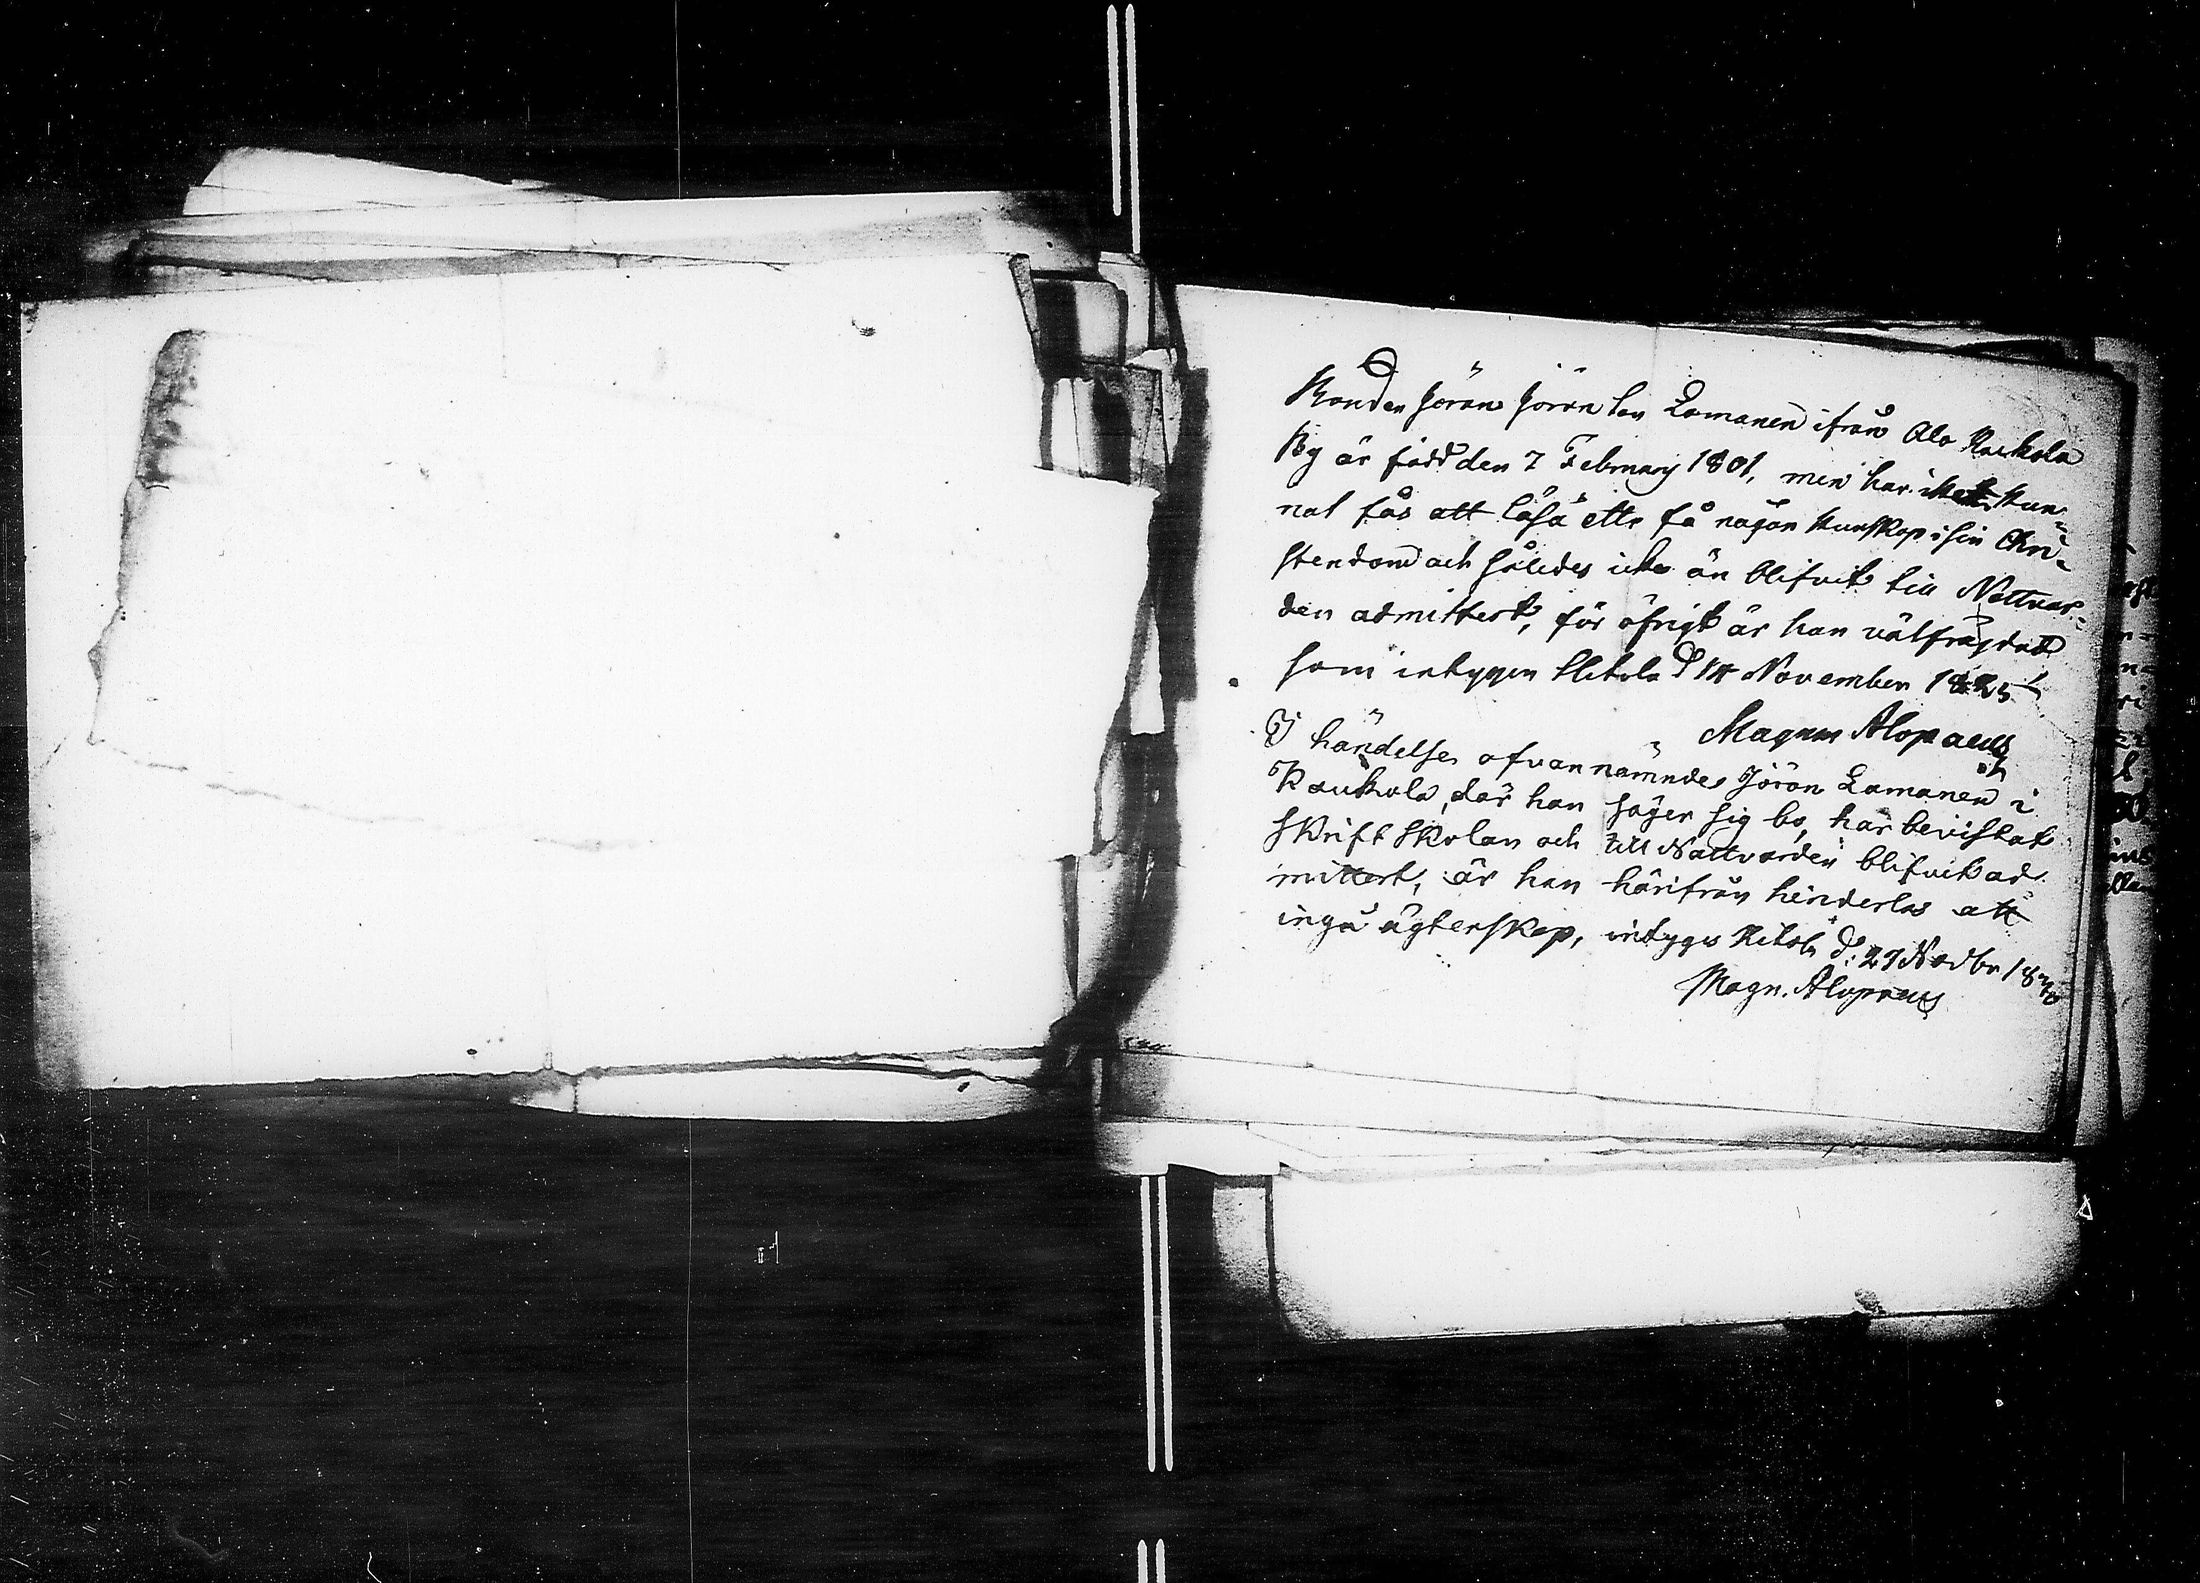 Bonden Jöran Jöran son Lamanen ifrån Ala Raukola
By är född den 7 February 1801, men har icke kun-
nat lär att läsa eller få någon kunskap i sin Chri-
stendom och således icke än blifvit till Nattvar-
den admittert, för öfrigt är han välfräjdad
som intygar Hitola d November 1825
Magnus Alopaeus
I händelse ofvannämnde Jöran Lamanen i
Raukola, där han säger sig bo, har bevistat
Skriftskolan och till Nattvarden blifvit ad
mittert, är han härifrån hinderlös att
ingå ägtenskap, intygas Hitola d: 29 Novbr
Magn. Alopaeus